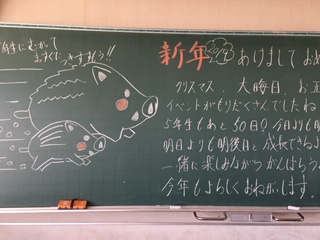 年生にむかって
まっすぐ
つきすすもう!!
新年 あけまして おめ
クリスマス、大晦日、お正
イベントがもりだくさんでしたね
5年生もあと50日!今日よりも明
明日よりも明後日と成長できるよ
一緒に楽しみながらがんばろう
今年もよろしくおねがいします。